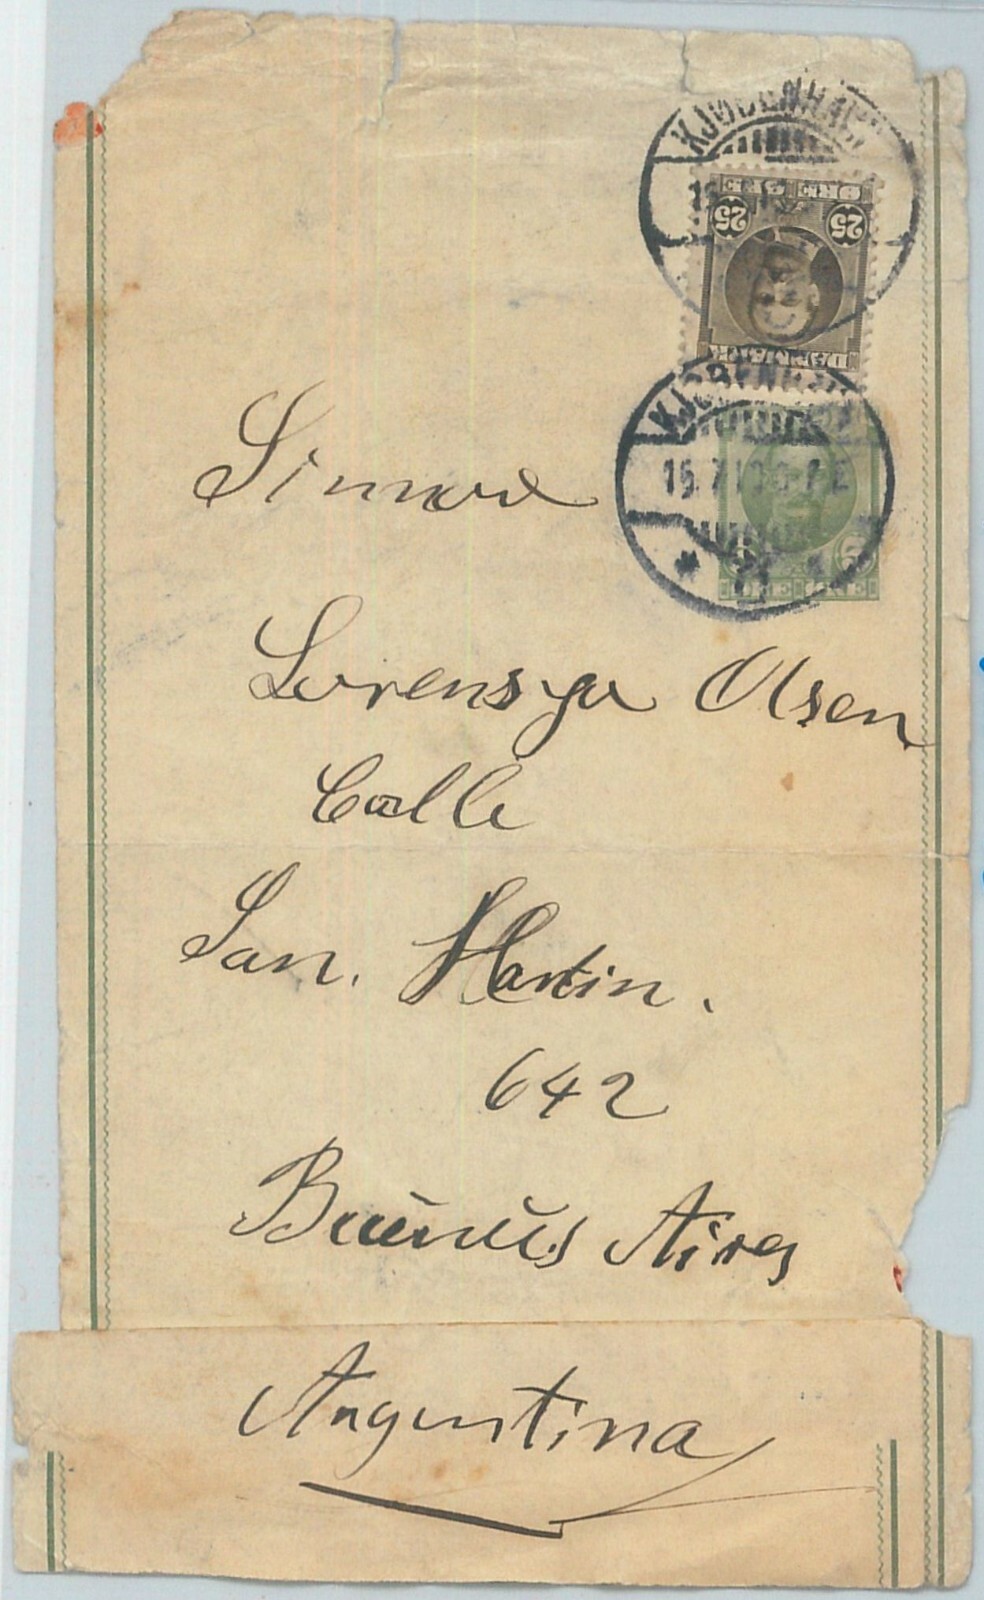 KJØBENHAVN
ØRE ØRE
25 25
DANMARK
KJØBENHAVN
ØRE ØRE
Sinnore
Lorensya Olsen
Calle
San. Martin.
642
Buenus Aires
Argentina